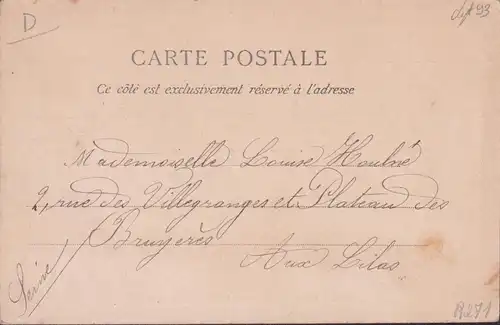 D
dpt 93
CARTE POSTALE
Ce côté est exclusivement réservé à l'adresse
Mademoiselle Louise Houbré
2, rue des Villegranges et Plateau des
Bruyerès
Aux Lilas
Seine
R271